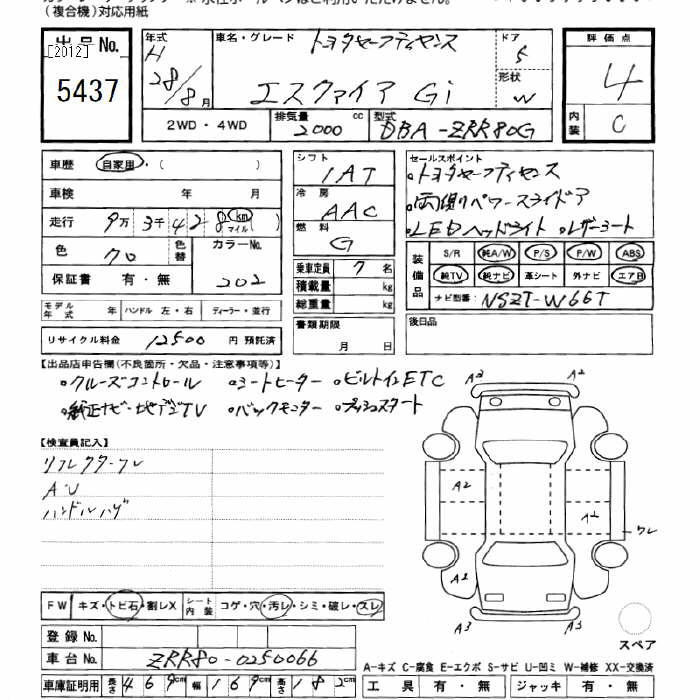 (複合機)対応用紙
出品No. 年式 H 車名・グレード トヨタセーフティセンス ドア 5 評価点
[2012] 28/8月 エスクァイア Gi 形状 W 4
5437 2WD・4WD 排気量 2000 cc 型式 DBA-ZRR80G 内装 C
車歴 自家用・( ) シフト IAT セールスポイント
車検 年 月 冷房 AAC ・トヨタセーフティセンス
走行 9万3千428 km マイル ( ) 燃料 G ・両側パワースライドア
色 クロ 色替 カラーNo. 202 ・LEDヘッドライト ・レザーシート
保証書 有・無 乗車定員 7名 装備品 S/R 純A/W P/S P/W ABS
積載量 kg 純TV 純ナビ 革シート 外ナビ エアB
総重量 kg ナビ型番: NSZT-W66T
モデル年式 年 ハンドル 左・右 ディーラー・並行 書類期限 月 日 後日品
リサイクル料金 12500 円 預託済
【出品店申告欄(不良箇所・欠品・注意事項等)】
・クルーズコントロール ・シートヒーター ・ビルトインETC
・純正ナビ・地デジTV ・バックモニター ・プッシュスタート
【検査員記入】
リフレクターワレ
AU
ハンドルハゲ
A3 A2
A2
A1 ワレ
A1
A3 A3
FW キズ・トビ石・割レX シート内装 コゲ・穴・汚レ・シミ・破レ・スレ
登録No.
車台No. ZRR80-0250066 スペア
A-キズ C-腐食 E-エクボ S-サビ U-凹ミ W-補修 XX-交換済
車庫証明用 長さ 469cm 幅 169cm 高さ 182cm 工具 有・無 ジャッキ 有・無